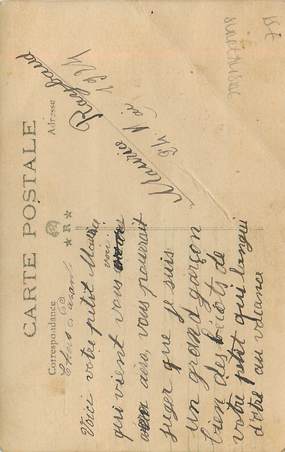 CARTE POSTALE
Correspondance
Adresse
R
Voici votre petit Maurice
qui vient vous voir
vous pouvait
juger que je suis
un grand garçon
bien des bécots de
votre petit qui langui
d'être au vacance
Maurice Raybaud
24 Mai 1924